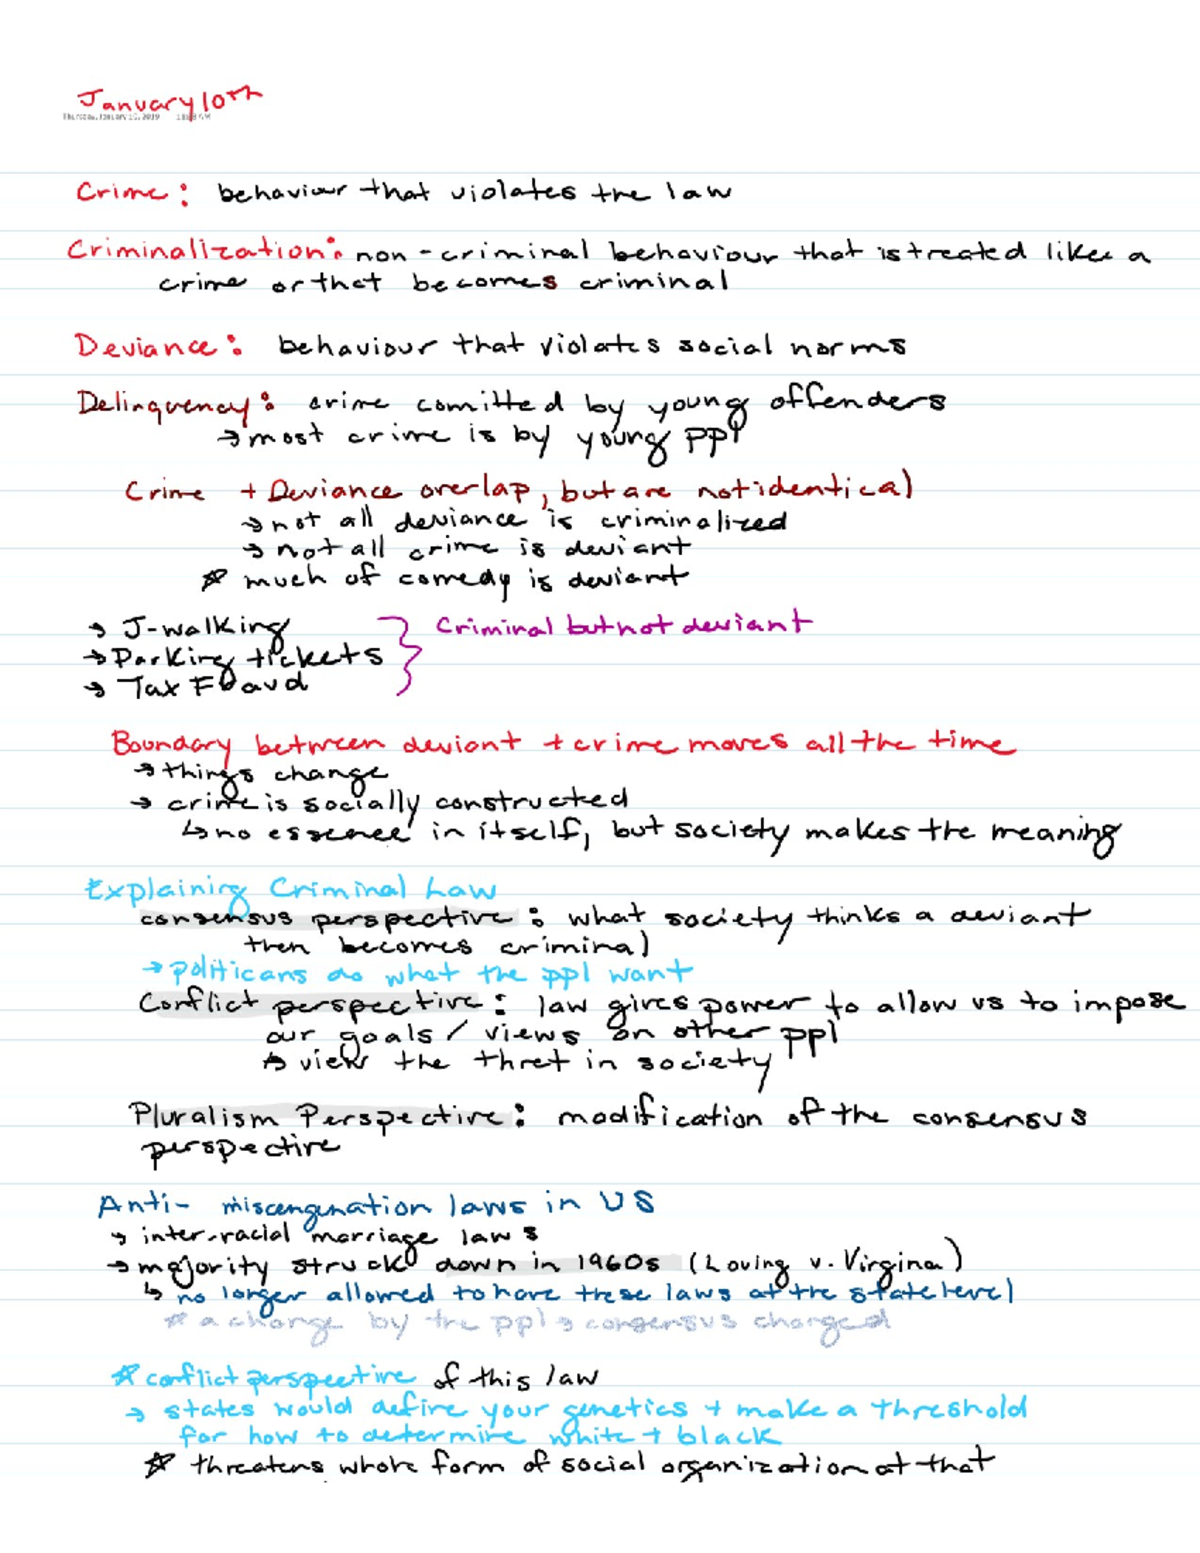 January 10th
Thursday, January 10, 2019
Crime: behaviour that violates the law
Criminalization: non-criminal behaviour that is treated like a
crime or that becomes criminal
Deviance: behaviour that violates social norms
Delinquency: crime comitted by young offenders
→ most crime is by young ppl
Crime + Deviance overlap, but are not identical
→ not all deviance is criminalized
→ not all crime is deviant
☆ much of comedy is deviant
→ J-walking } Criminal but not deviant
→ Parking tickets
→ Tax Fraud
Boundary between deviant + crime moves all the time
→ things change
→ crime is socially constructed
↳ no essence in itself, but society makes the meaning
Explaining Criminal Law
consensus perspective: what society thinks a deviant
then becomes criminal
→ politicans do what the ppl want
Conflict perspective: law gives power to allow us to impose
our goals / views on other ppl
↳ view the thret in society
Pluralism Perspective: modification of the consensus
perspective
Anti- miscengenation laws in US
→ inter-racial marriage laws
→ majority struck down in 1960s (Loving v. Virgina)
↳ no longer allowed to have these laws at the state level
* a change by the ppl → consensus changed
☆ conflict perspective of this law
→ states would define your genetics + make a threshold
for how to determine white + black
☆ threatens whole form of social organization at that